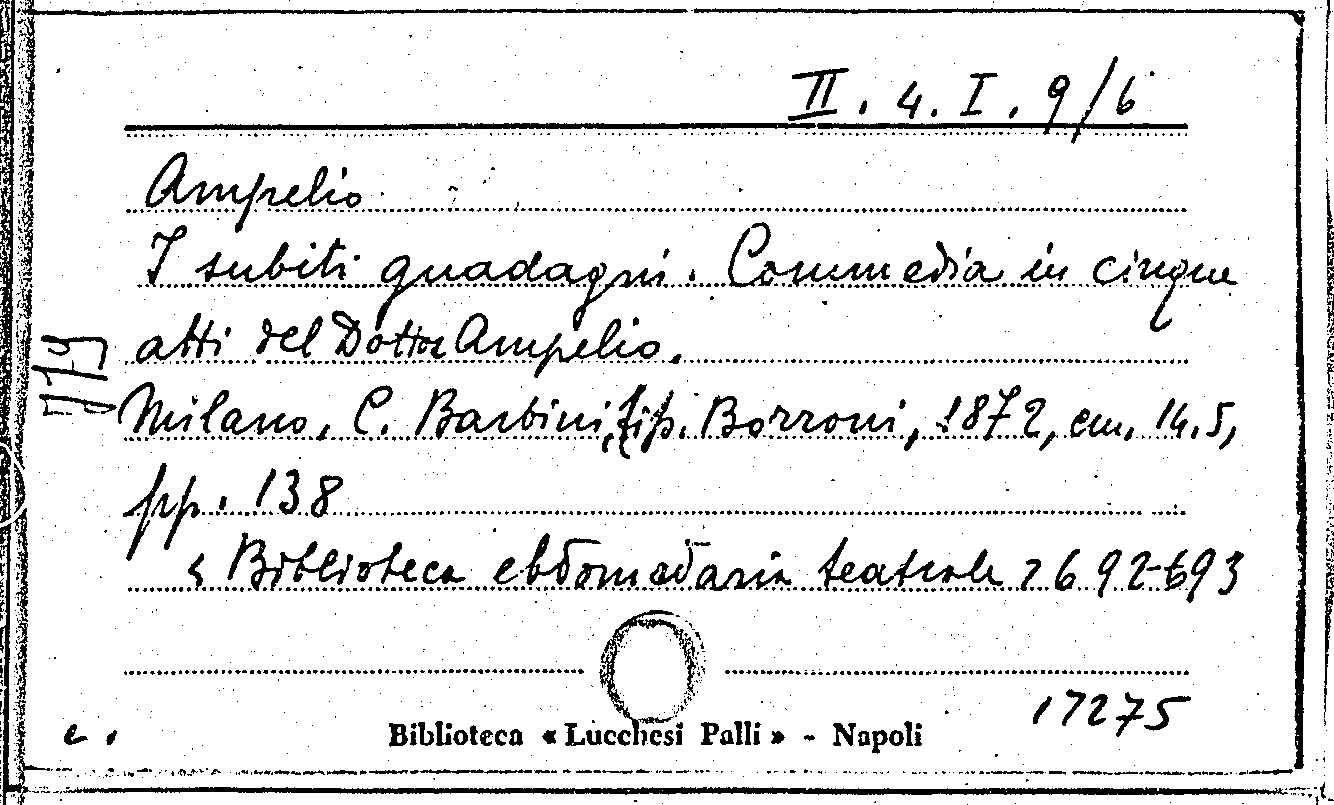 II. 4. I. 9/6
Ampelio
I subiti guadagni. Commedia in cinque
atti del Dottor Ampelio.
Milano, C. Barbini, tip. Borroni, 1872, cm. 14.5,
pp. 138
« Biblioteca ebdomadaria teatrale » 692-693
17275
c.
Biblioteca « Lucchesi Palli » - Napoli